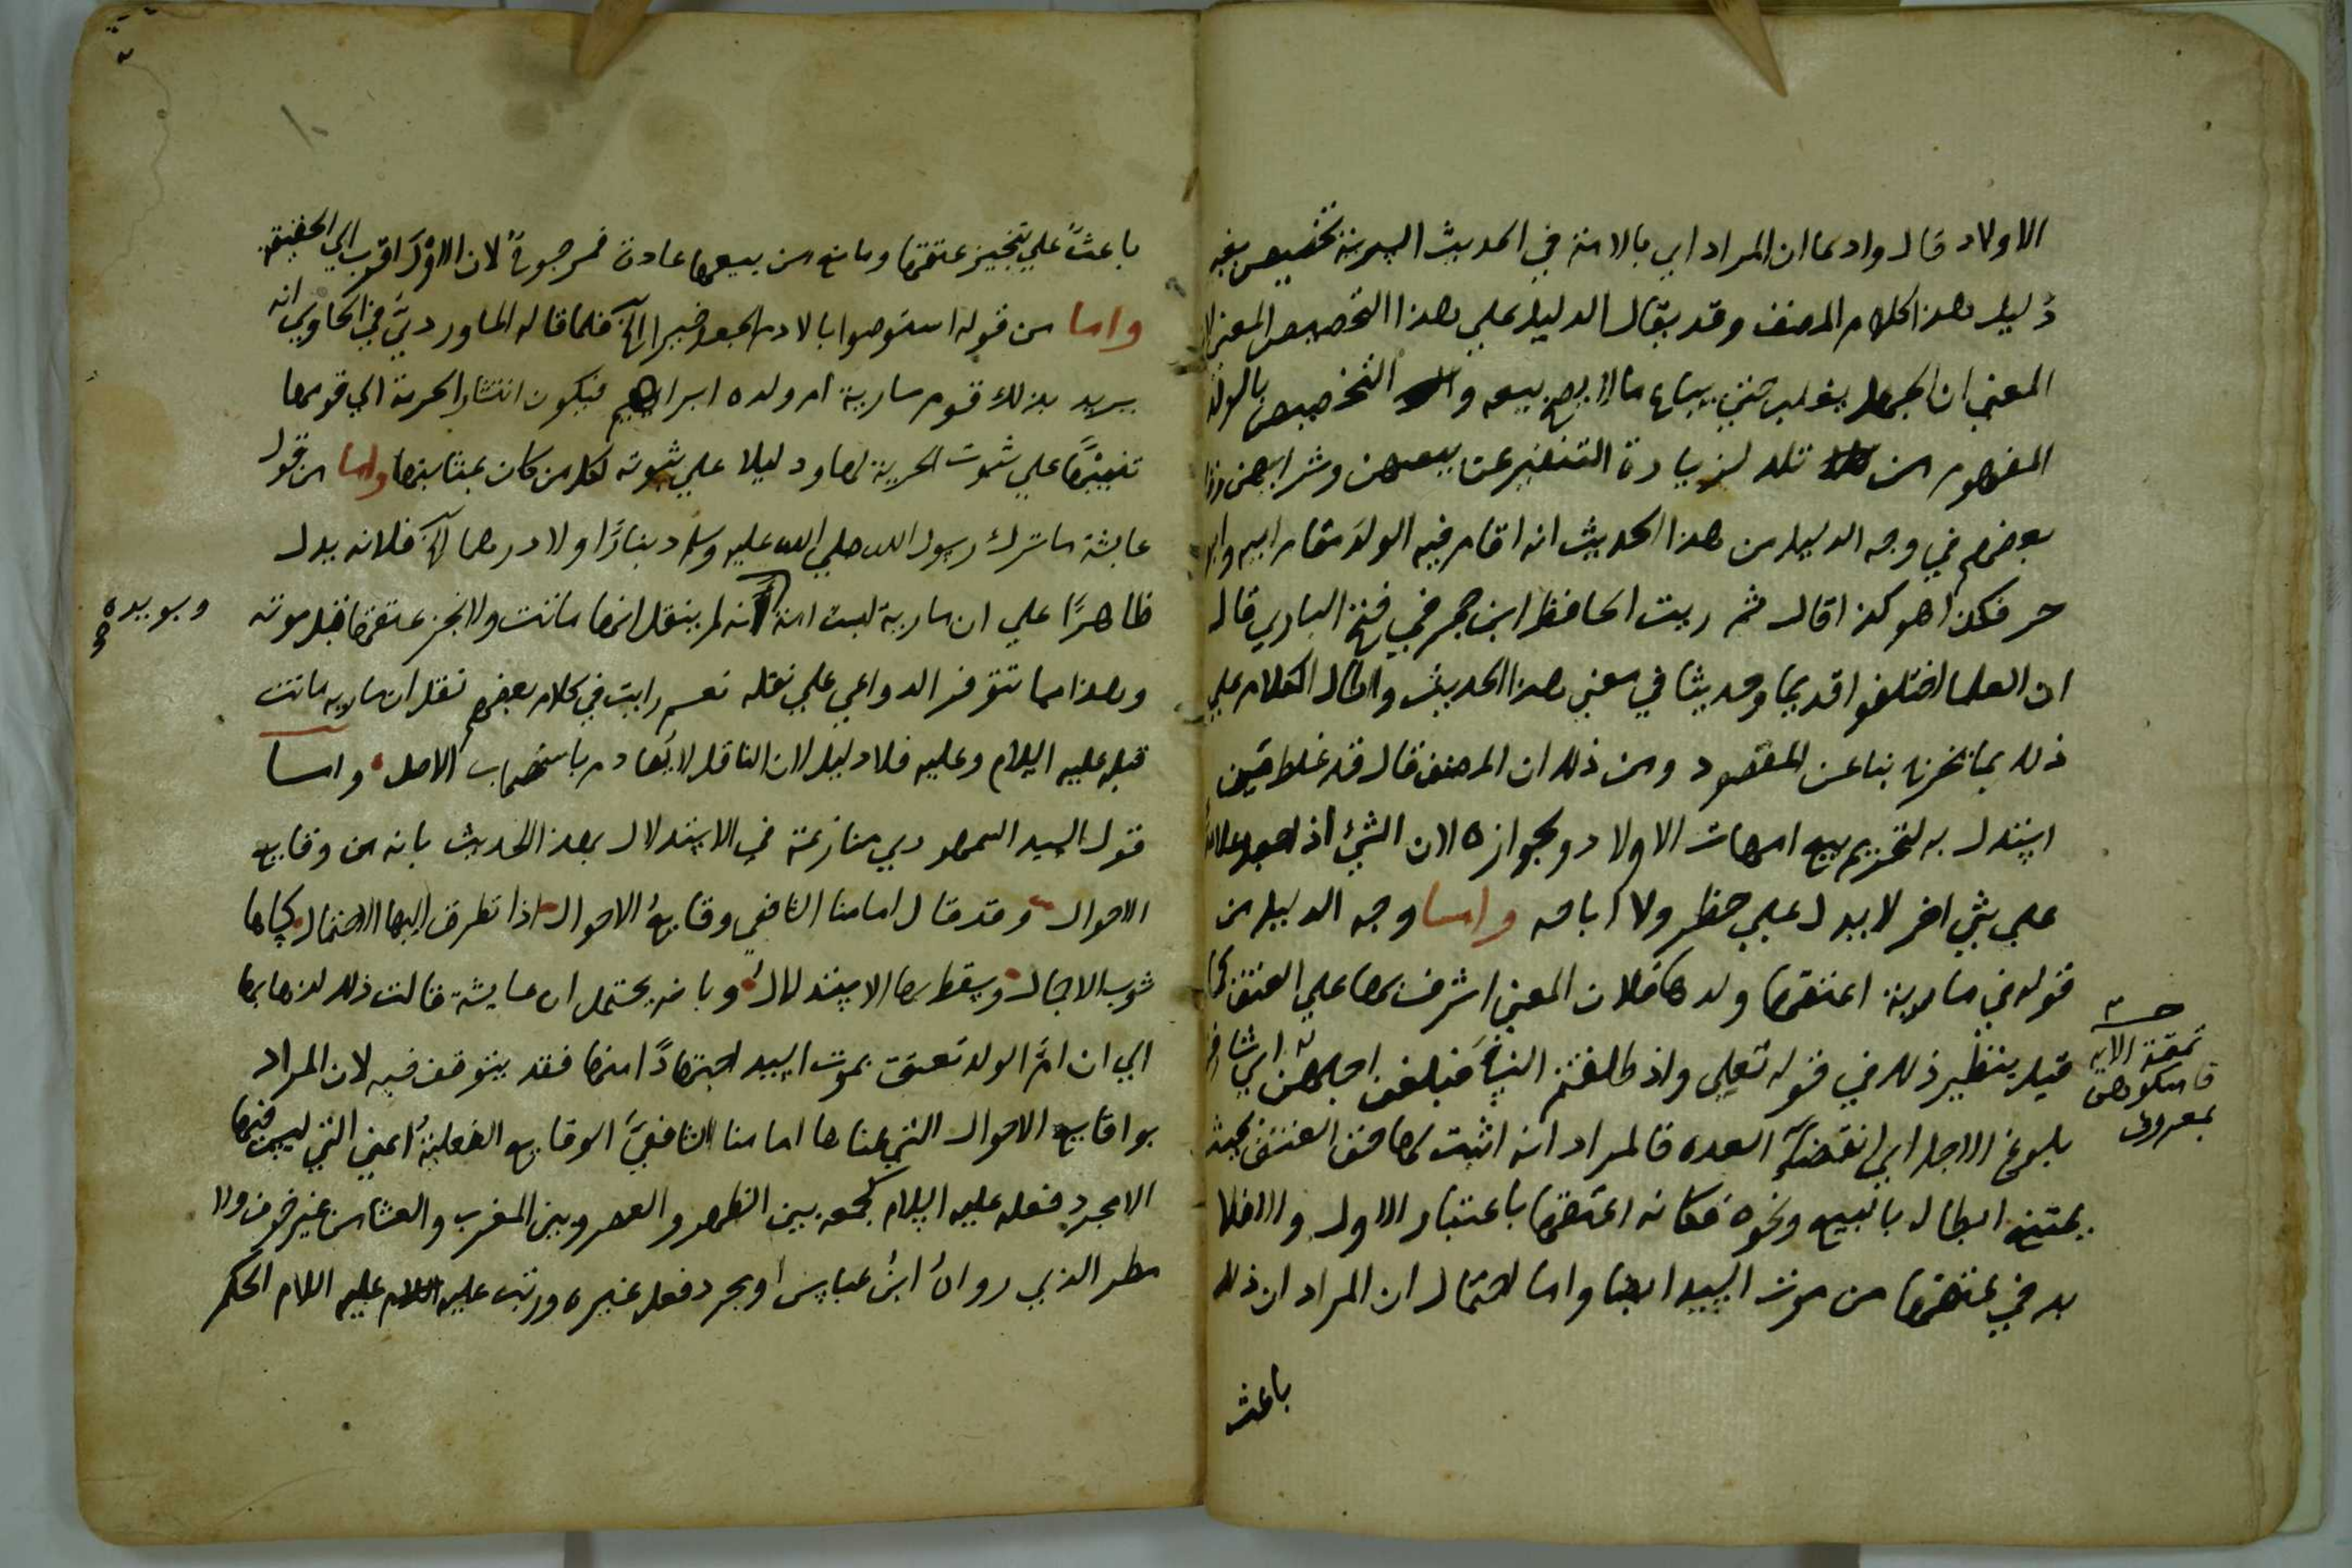 الاولاد قال وادعا ان المراد اي بالامة في الحديث السرية تخصيص بغير
دليل هذا كلام المصنف وقد يقال الدليل علي هذا التخصيص المعني لان
المعني ان الجهل يغلب حتي يباع ما لا يصح بيعه والتخصيص بالولد
المفهوم من تلد لزيادة التنفير عن بيعهن وشرايهن
بعضهم في وجه الدليل من هذا الحديث انه اقام فيه الولد مقام ابيه وابوه
حر فكذا هو كذا قال ثم رايت الحافظ ابن حجر في فتح الباري قال
ان العلما اختلفوا قديما وحديثا في معني هذا الحديث واطال الكلام علي
ذلك بما يخرجنا عن المقصود ومن ذلك ان المصنف قال قد غلط من
استدل به لتحريم بيع امهات الاولاد ولجوازه لان الشي اذا جعل علامة
علي شي اخر لا يدل علي حظر ولا اباحه واما وجه الدليل من
قوله في مارية اعتقها ولدها فلان المعني اشرف بها علي العتق كما
قيل بنظير ذلك في قوله تعلي واذا طلقتم النسا فبلغن اجلهن اي شارفن
بلوغ الاجل اي انقضا العده فالمراد انه اثبت لها حق العتق بحيث
يمتنع ابطاله بالبيع ونحوه فكانه اعتقها باعتبار الاول والا فلا
بد في عتقها من موت السيد ايضا واما احتمال ان المراد ان ذلك
باعث
تمة الايه
فامسكوهن
بمعروف
باعث علي تنجيز عتقها ومانع من بيعها عادة فمرجوح لان الاول اقرب الي الحقيقة
واما من قوله استوصوا بالادم الجعد خيرا الخ فلما قاله الماوردي في الحاوي انه
يريد بذلك قوم مارية ام ولده ابراهيم فيكون انتشار الحرمة الي قومها
تنبيها علي ثبوت الحرية لها ودليلا علي ثبوته لكل من كان بمثابتها واما من قول
عايشة ما ترك رسول الله صلي الله عليه وسلم دينارا ولا درهما الخ فلانه يدل
ظاهرا علي ان مارية ليست امة لانه لم ينقل انها ماتت ولا نجز عتقها قبل موته
وهذا مما تتوفر الدواعي علي نقله نعم رايت في كلام بعضهم نقل ان ماريه ماتت
قبله عليه السلام وعليه فلا دليل لان الناقل لا يعادم باستصحاب الاصل واما
قول السيد السمهودي منازعته في الاستدلال بهذا الحديث بانه من وقايع
الاحوال وقد قال امامنا الشافعي وقايع الاحوال اذا تطرق اليها الاحتمال كساها
ثوب الاجمال وسقط بها الاستدلال وبانه يحتمل ان عايشة قالت ذلك لذهابها
الي ان ام الولد تعتق بموت السيد اجتهادا منها فقد يتوقف فيه لان المراد
بوقايع الاحوال التي عناها امامنا الشافعي الوقايع الفعلية اعني التي ليس فيها
الا مجرد فعله عليه السلام كجمعه بين الظهر والعصر وبين المغرب والعشا من غير خوف ولا
مطر الذي رواه ابن عباس او مجرد فعل غيره ورتب عليه عليه السلام الحكم
ويويده